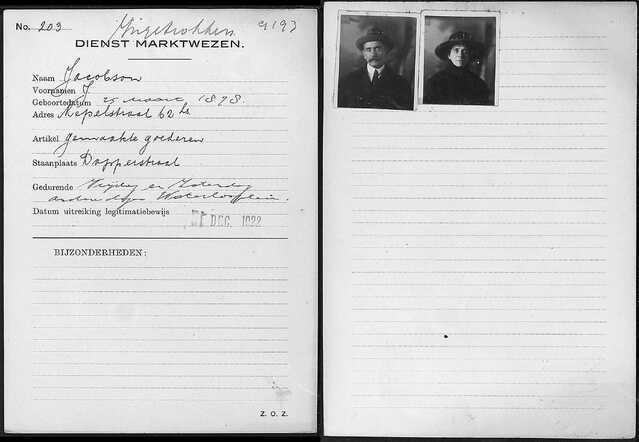 No. 203 Ingetrokken
DIENST MARKTWEZEN.
Naam Jacobson
Voornamen J
Geboortedatum 25 Maart 1878.
Adres Nepelstraat 62
Artikel gemaakte goederen
Staanplaats Dapperstraat
Gedurende Vrijdag en Zaterdag
andere dagen Waterlooplein.
Datum uitreiking legitimatiebewijs DEC. 1922
BIJZONDERHEDEN:
Z. O. Z.